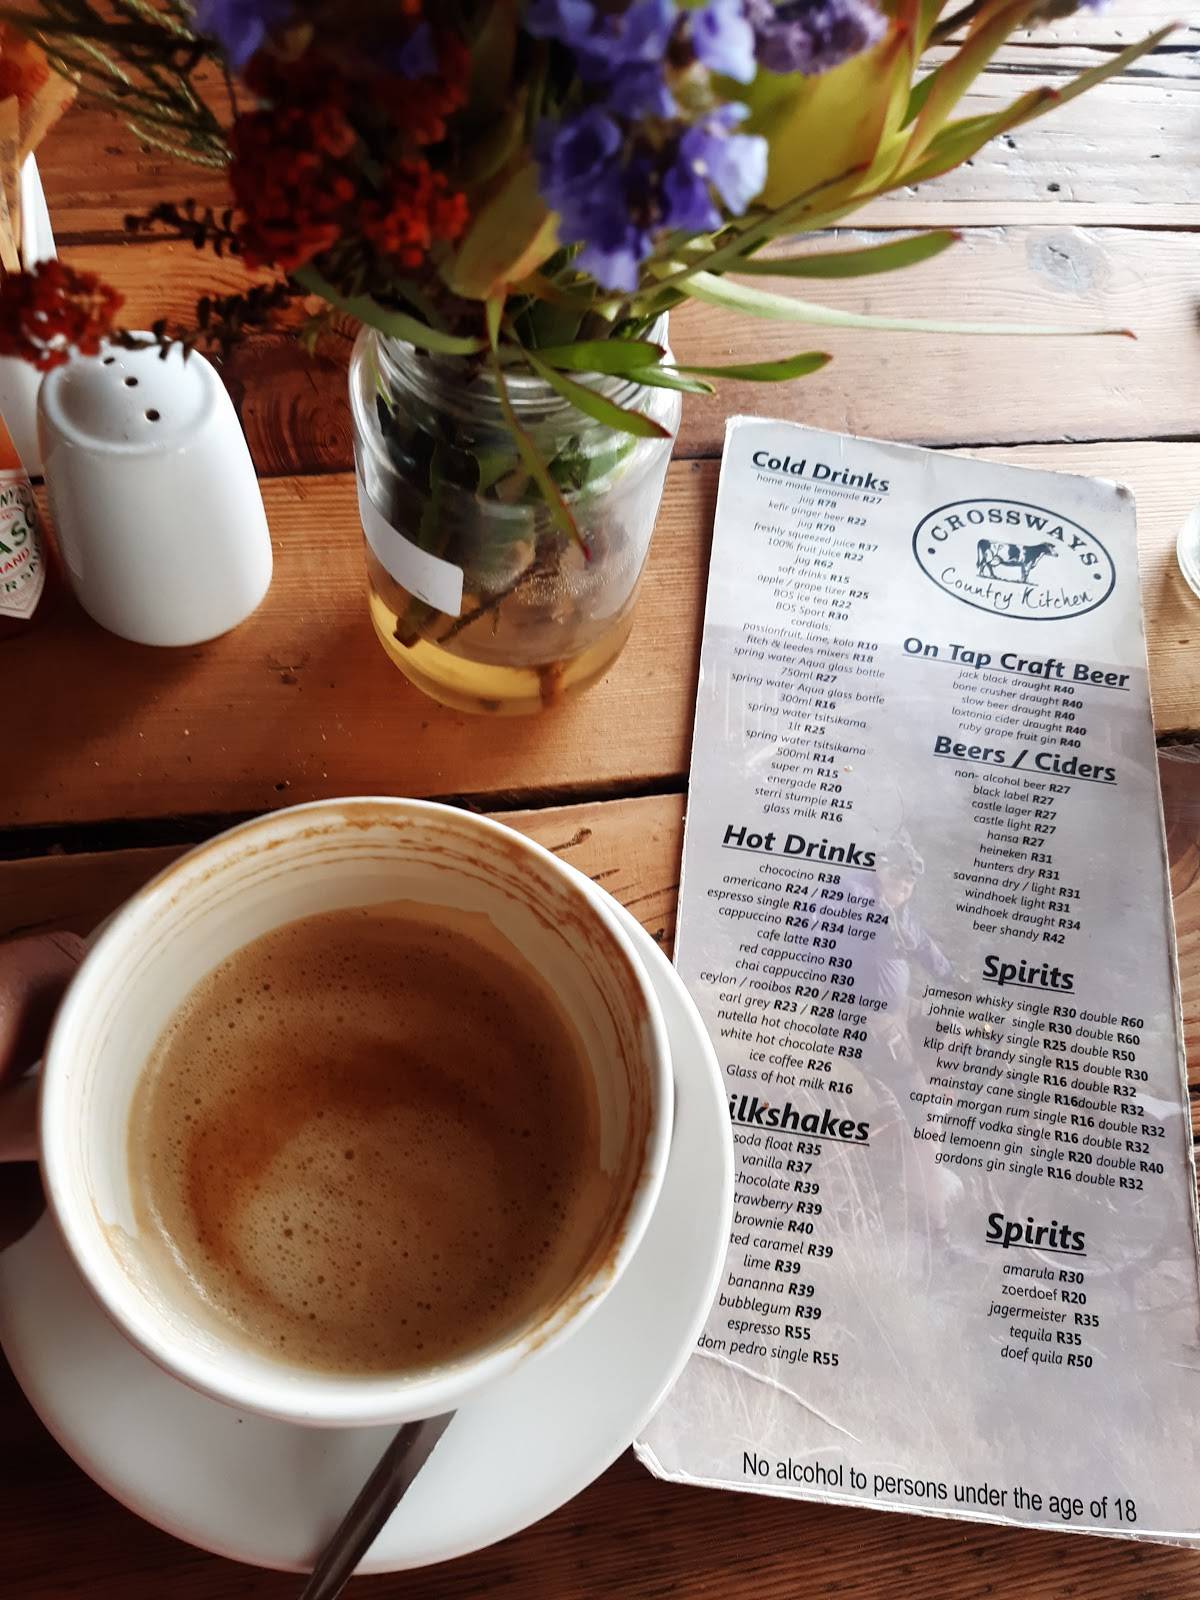 Cold Drinks
home made lemonade R27
jug R78
kefir ginger beer R22
jug R70
freshly squeezed juice R37
100% fruit juice R22
jug R62
soft drinks R15
apple / grape tizer R25
BOS ice tea R22
BOS Sport R30
cordials:
passionfruit, lime, kola R10
fitch & leedes mixers R18
spring water Aqua glass bottle
750ml R27
spring water Aqua glass bottle
300ml R16
spring water tsitsikama
1lt R25
spring water tsitsikama
500ml R14
super m R15
energade R20
sterri stumpie R15
glass milk R16
Hot Drinks
chococino R38
americano R24 / R29 large
espresso single R16 doubles R24
cappuccino R26 / R34 large
cafe latte R30
red cappuccino R30
chai cappuccino R30
ceylon / rooibos R20 / R28 large
earl grey R23 / R28 large
nutella hot chocolate R40
white hot chocolate R38
ice coffee R26
Glass of hot milk R16
ilkshakes
soda float R35
vanilla R37
chocolate R39
trawberry R39
brownie R40
ted caramel R39
lime R39
bananna R39
bubblegum R39
espresso R55
dom pedro single R55
CROSSWAYS
Country Kitchen
On Tap Craft Beer
jack black draught R40
bone crusher draught R40
slow beer draught R40
loxtonia cider draught R40
ruby grape fruit gin R40
Beers / Ciders
non- alcohol beer R27
black label R27
castle lager R27
castle light R27
hansa R27
heineken R31
hunters dry R31
savanna dry / light R31
windhoek light R31
windhoek draught R34
beer shandy R42
Spirits
jameson whisky single R30 double R60
johnie walker single R30 double R60
bells whisky single R25 double R50
klip drift brandy single R15 double R30
kwv brandy single R16 double R32
mainstay cane single R16double R32
captain morgan rum single R16 double R32
smirnoff vodka single R16 double R32
bloed lemoenn gin single R20 double R40
gordons gin single R16 double R32
Spirits
amarula R30
zoerdoef R20
jagermeister R35
tequila R35
doef quila R50
No alcohol to persons under the age of 18